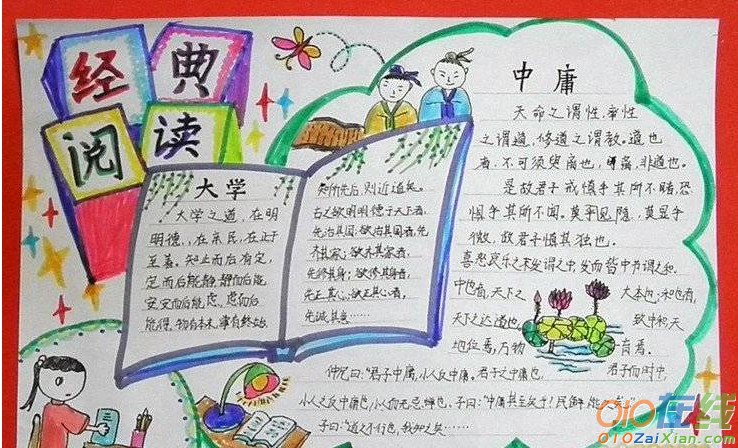 经典
阅读
大学
大学之道,在明
明德,,在亲民,在止于
至善。知止而后有定,
定而后能静,静而后能
安,安而后能虑,虑而后
能得。物有本末,事有终始,
知所先后,则近道矣。
古之欲明明德于天下者,
先治其国;欲治其国者,先
齐其家;欲齐其家者,
先修其身;欲修其身者,
先正其心;欲正其心者,
先诚其意……
中庸
天命之谓性,率性
之谓道,修道之谓教。道也
者,不可须臾离也,可离,非道也。
是故君子戒慎乎其所不睹,恐
惧乎其所不闻。莫乎见隐,莫显乎
微,故君子慎其独也。
喜怒哀乐之未发谓之中,发而皆中节谓之和。
中也者,天下之 大本也;和也者,
天下之达道也。 致中和,天
地位焉,万物 育焉。
仲尼曰:“君子中庸,小人反中庸。君子之中庸也, 君子而时中,
小人之反中庸也,小人而无忌惮也。子曰:“中庸其至矣乎!民鲜能久矣!”
子曰:“道之不行也,我知之矣……
OIO在线
OioZaiXian.Com